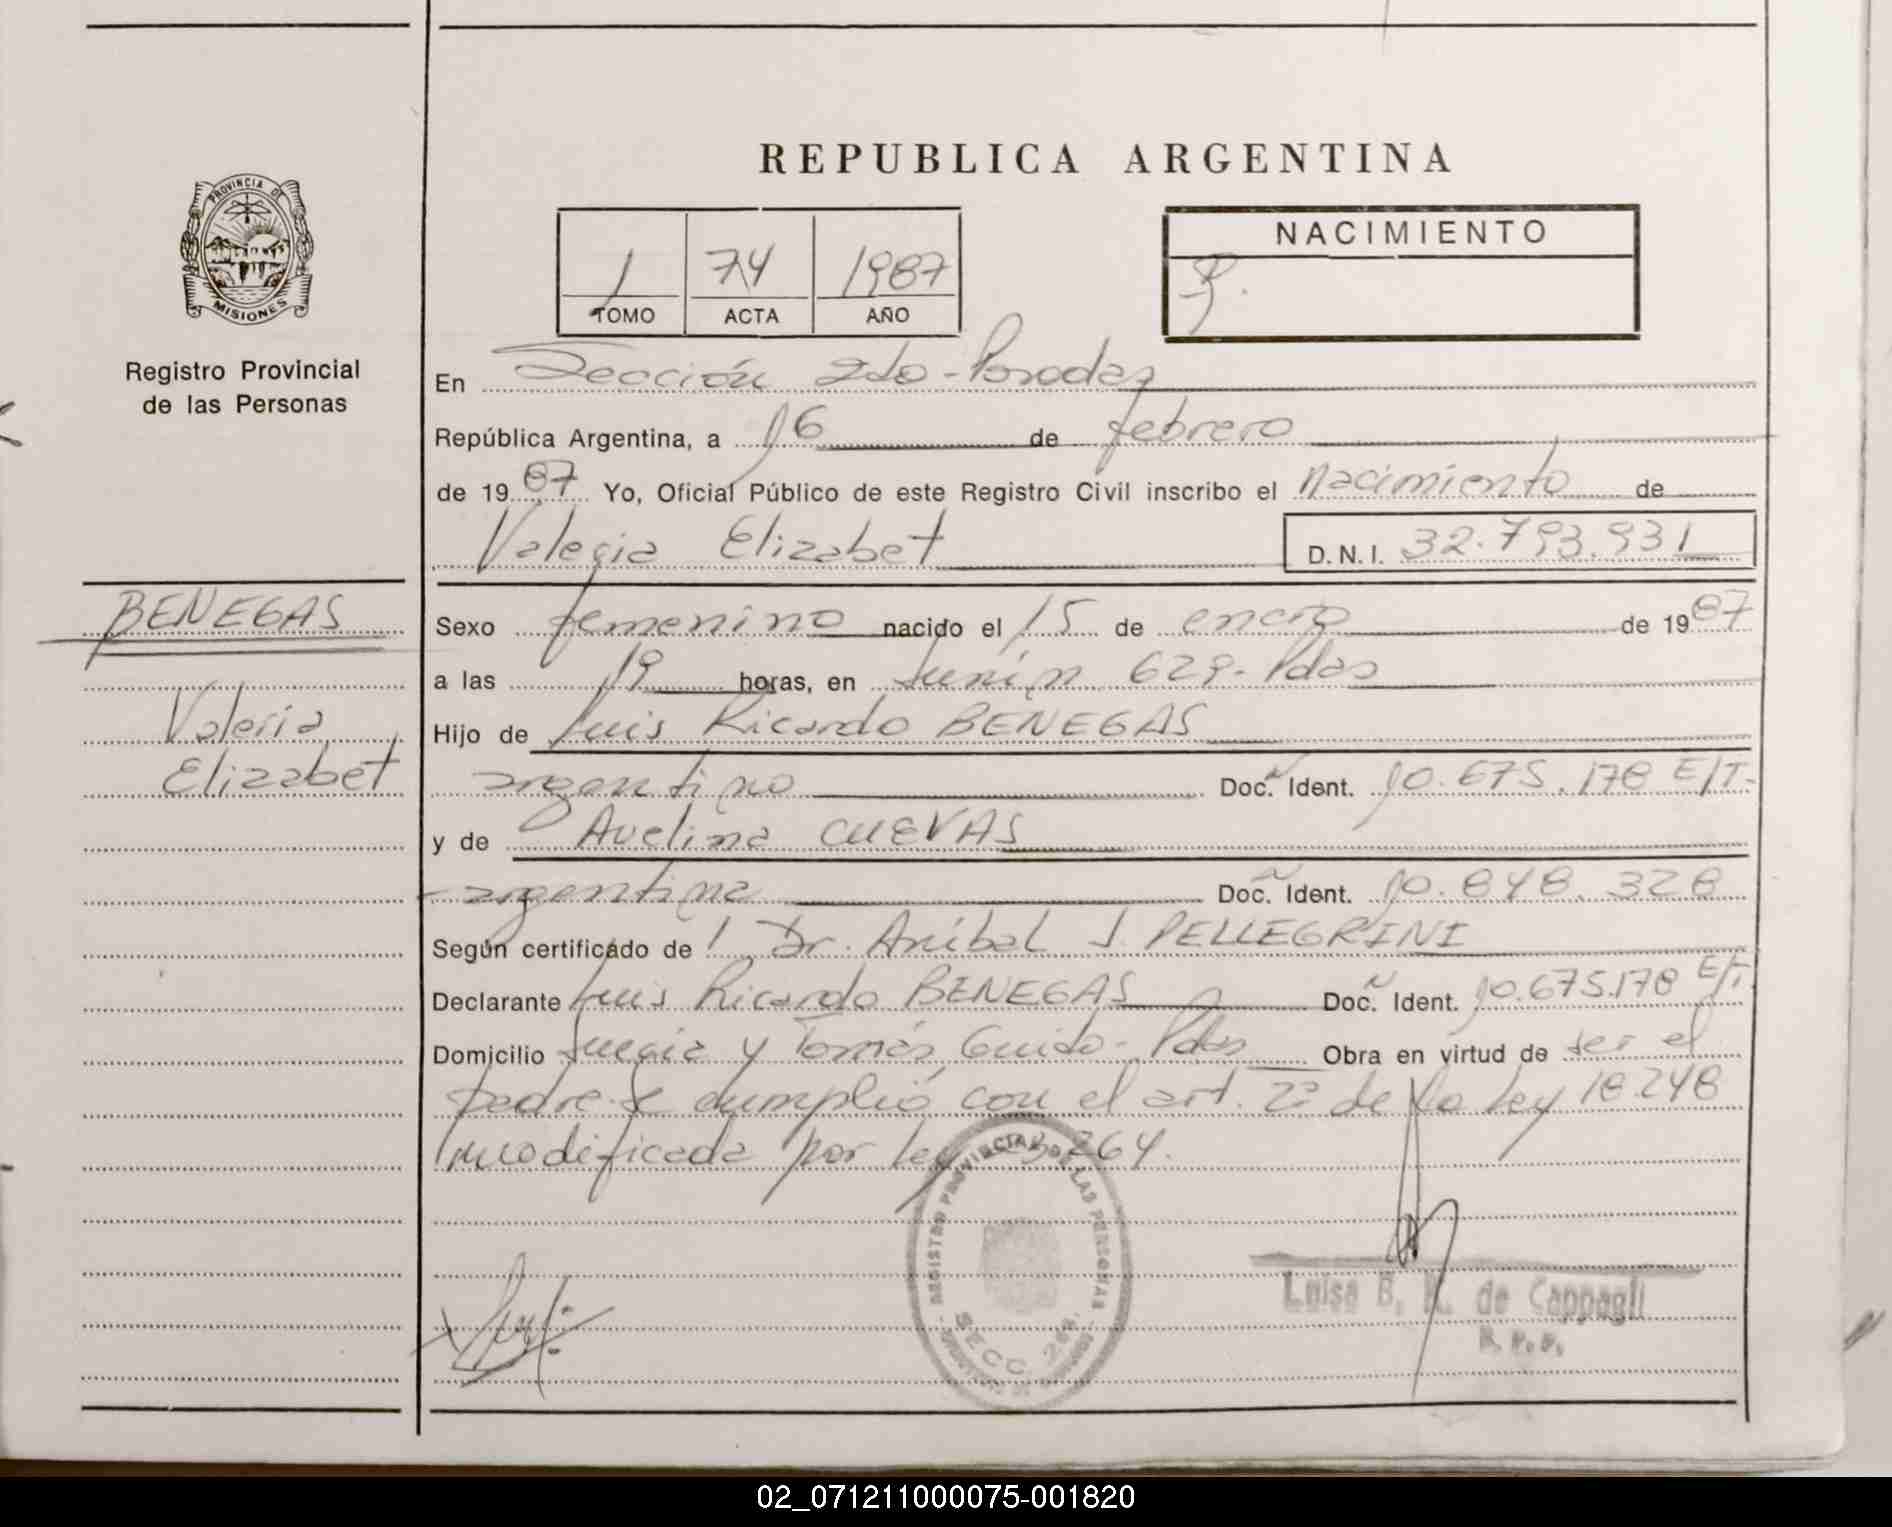 REPUBLICA ARGENTINA
PROVINCIA DE
MISIONES
Registro Provincial
de las Personas
1 74 1987
TOMO ACTA AÑO
NACIMIENTO
En Sección 2da-Posadas
República Argentina, a 16 de febrero
de 1987 Yo, Oficial Público de este Registro Civil inscribo el nacimiento de
Valeria Elizabet D.N.I. 32.793.931
BENEGAS
Valeria
Elizabet
Sexo femenino nacido el 15 de enero de 1987
a las 19 horas, en Junín 629-Pdas
Hijo de Luis Ricardo BENEGAS
argentino Doc. Ident. 10.675.178 E/T.
y de Avelina CUEVAS
argentina Doc. Ident. 10.848.328
Según certificado de 1 Dr. Aníbal J. PELLEGRINI
Declarante Luis Ricardo BENEGAS Doc. Ident. 10.675.178 E/T.
Domicilio y Tomás Guido-Pdas Obra en virtud de ser el
padre-Se cumplió con el art. 2º de la Ley 18.248
modificada por ley 264.
REGISTRO PROVINCIAL DE LAS PERSONAS
SECC. 2da.
Luisa B. de Cappagli
02_071211000075-001820